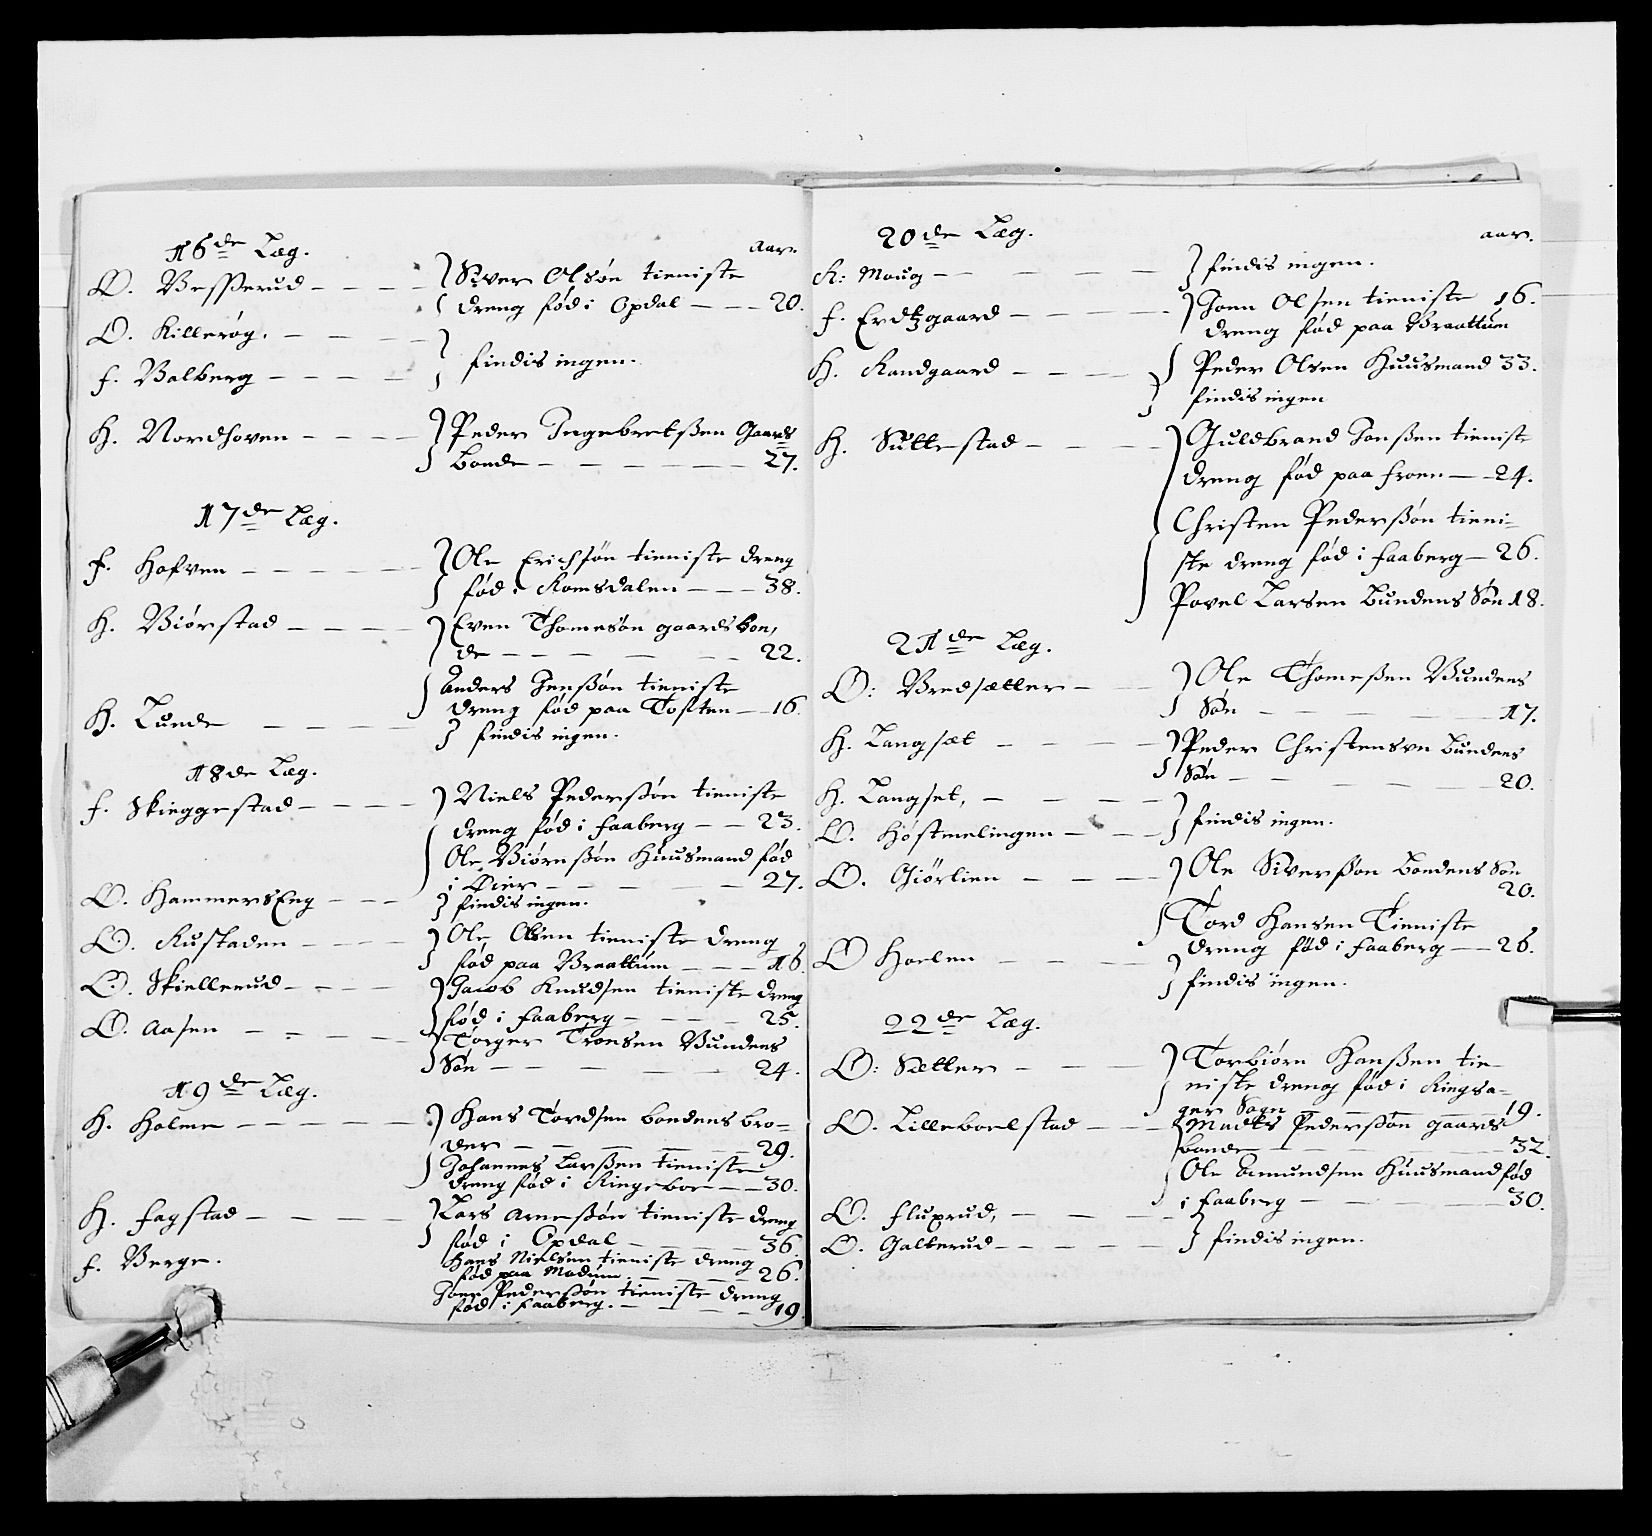 16de Læg.
aar.
O. Vesserud - - - - Siver Olsøn tieniste
dreng fød i Opdal - - - 20.
O. Killerøg. - - -
F. Balberg - - - - findis ingen.
H. Nordhoven - - - - Peder Ingebretsßen Gaards
bonde - - - - - - 27.
17de Læg.
F. Hofven - - - - - Ole Erichsøn tieniste dreng
fød i Romsdalen - - - 38.
H. Biørstad - - - - Even Thomesøn gaards bon,
de - - - - - - 22.
Anders Jenßøn tieniste
dreng fød paa Toften - 16
H. Lunde - - - - findis ingen.
18de Læg.
F. Skieggestad - - - - Niels Pederßøn tieniste
dreng fød i Faaberg - - 23.
Ole Biørnßøn Huusmand fød
i Øier - - - - - 27.
O. HammersEng - - - findis ingen.
O. Rustaden - - - - Ole Olsen tieniste dreng
fød paa Braattum - - - 16
O. Skiellerud - - - - Jacob Knudsen tieniste dreng
fød i Faaberg - - - - 25.
O. Aasen - - - - Torger Tronsen Bundens
Søn - - - - - 24.
19de Læg.
H. Holme - - - - - Hans Tordsen bondens bro-
der - - - - - 29.
Johannes Larßen tieniste
dreng fød i Ringeboe - - 30.
H. Fagstad - - - - Lars Arneßøn tieniste dreng
fød i Opdal - - - - 36.
F. Berge.
Hans Nielsen tieniste dreng
fød paa Modum - - - - 26.
Joen Pederßøn tieniste dreng
fød i Faaberg. - - - - 19.
20de Læg.
aar.
K: Moug - - - - - findis ingen.
F. Erdtzgaard - - - - - Joen Olsen tieniste 16.
dreng fød paa Braattum
H. Randgaard - - - - Peder Olsen Huusmand 33.
findis ingen
H. Suttestad - - - - Guldbrand Jonßen tienist
dreng fød paa Froen - 24.
Christen Pederßøn tieni-
ste dreng fød i Faaberg - 26.
Povel Larsen Bundens Søn 18.
21de Læg.
O: Bredsætter - - Ole Thomeßen Bundens
Søn - - - - - 17.
H. Langsæt - - - - Peder Christensøn Bundens
Søn - - - - - 20.
H. Langset, - - - -
O. Høstmelingen - - - findis ingen.
O. Giørlien - - - - Ole Siverßøn Bondens Søn
20.
Tord Hansen Tieniste
dreng fød i Faaberg - - 26.
O Hoelen - - - - findis ingen.
22de Læg.
O: Sætter - - - Torbiørn Hanßen tie-
niste dreng fød i Ringsa-
ger Sogn - - - - 19.
O. Lilleboelstad - - - Madts Pederßøn gaards
bonde - - - - - 32.
Ole Amundsen Huusmand fød
i Faaberg - - - - 30.
O. Fluxrud, - - - -
O. Galterud - - - - - findis ingen.